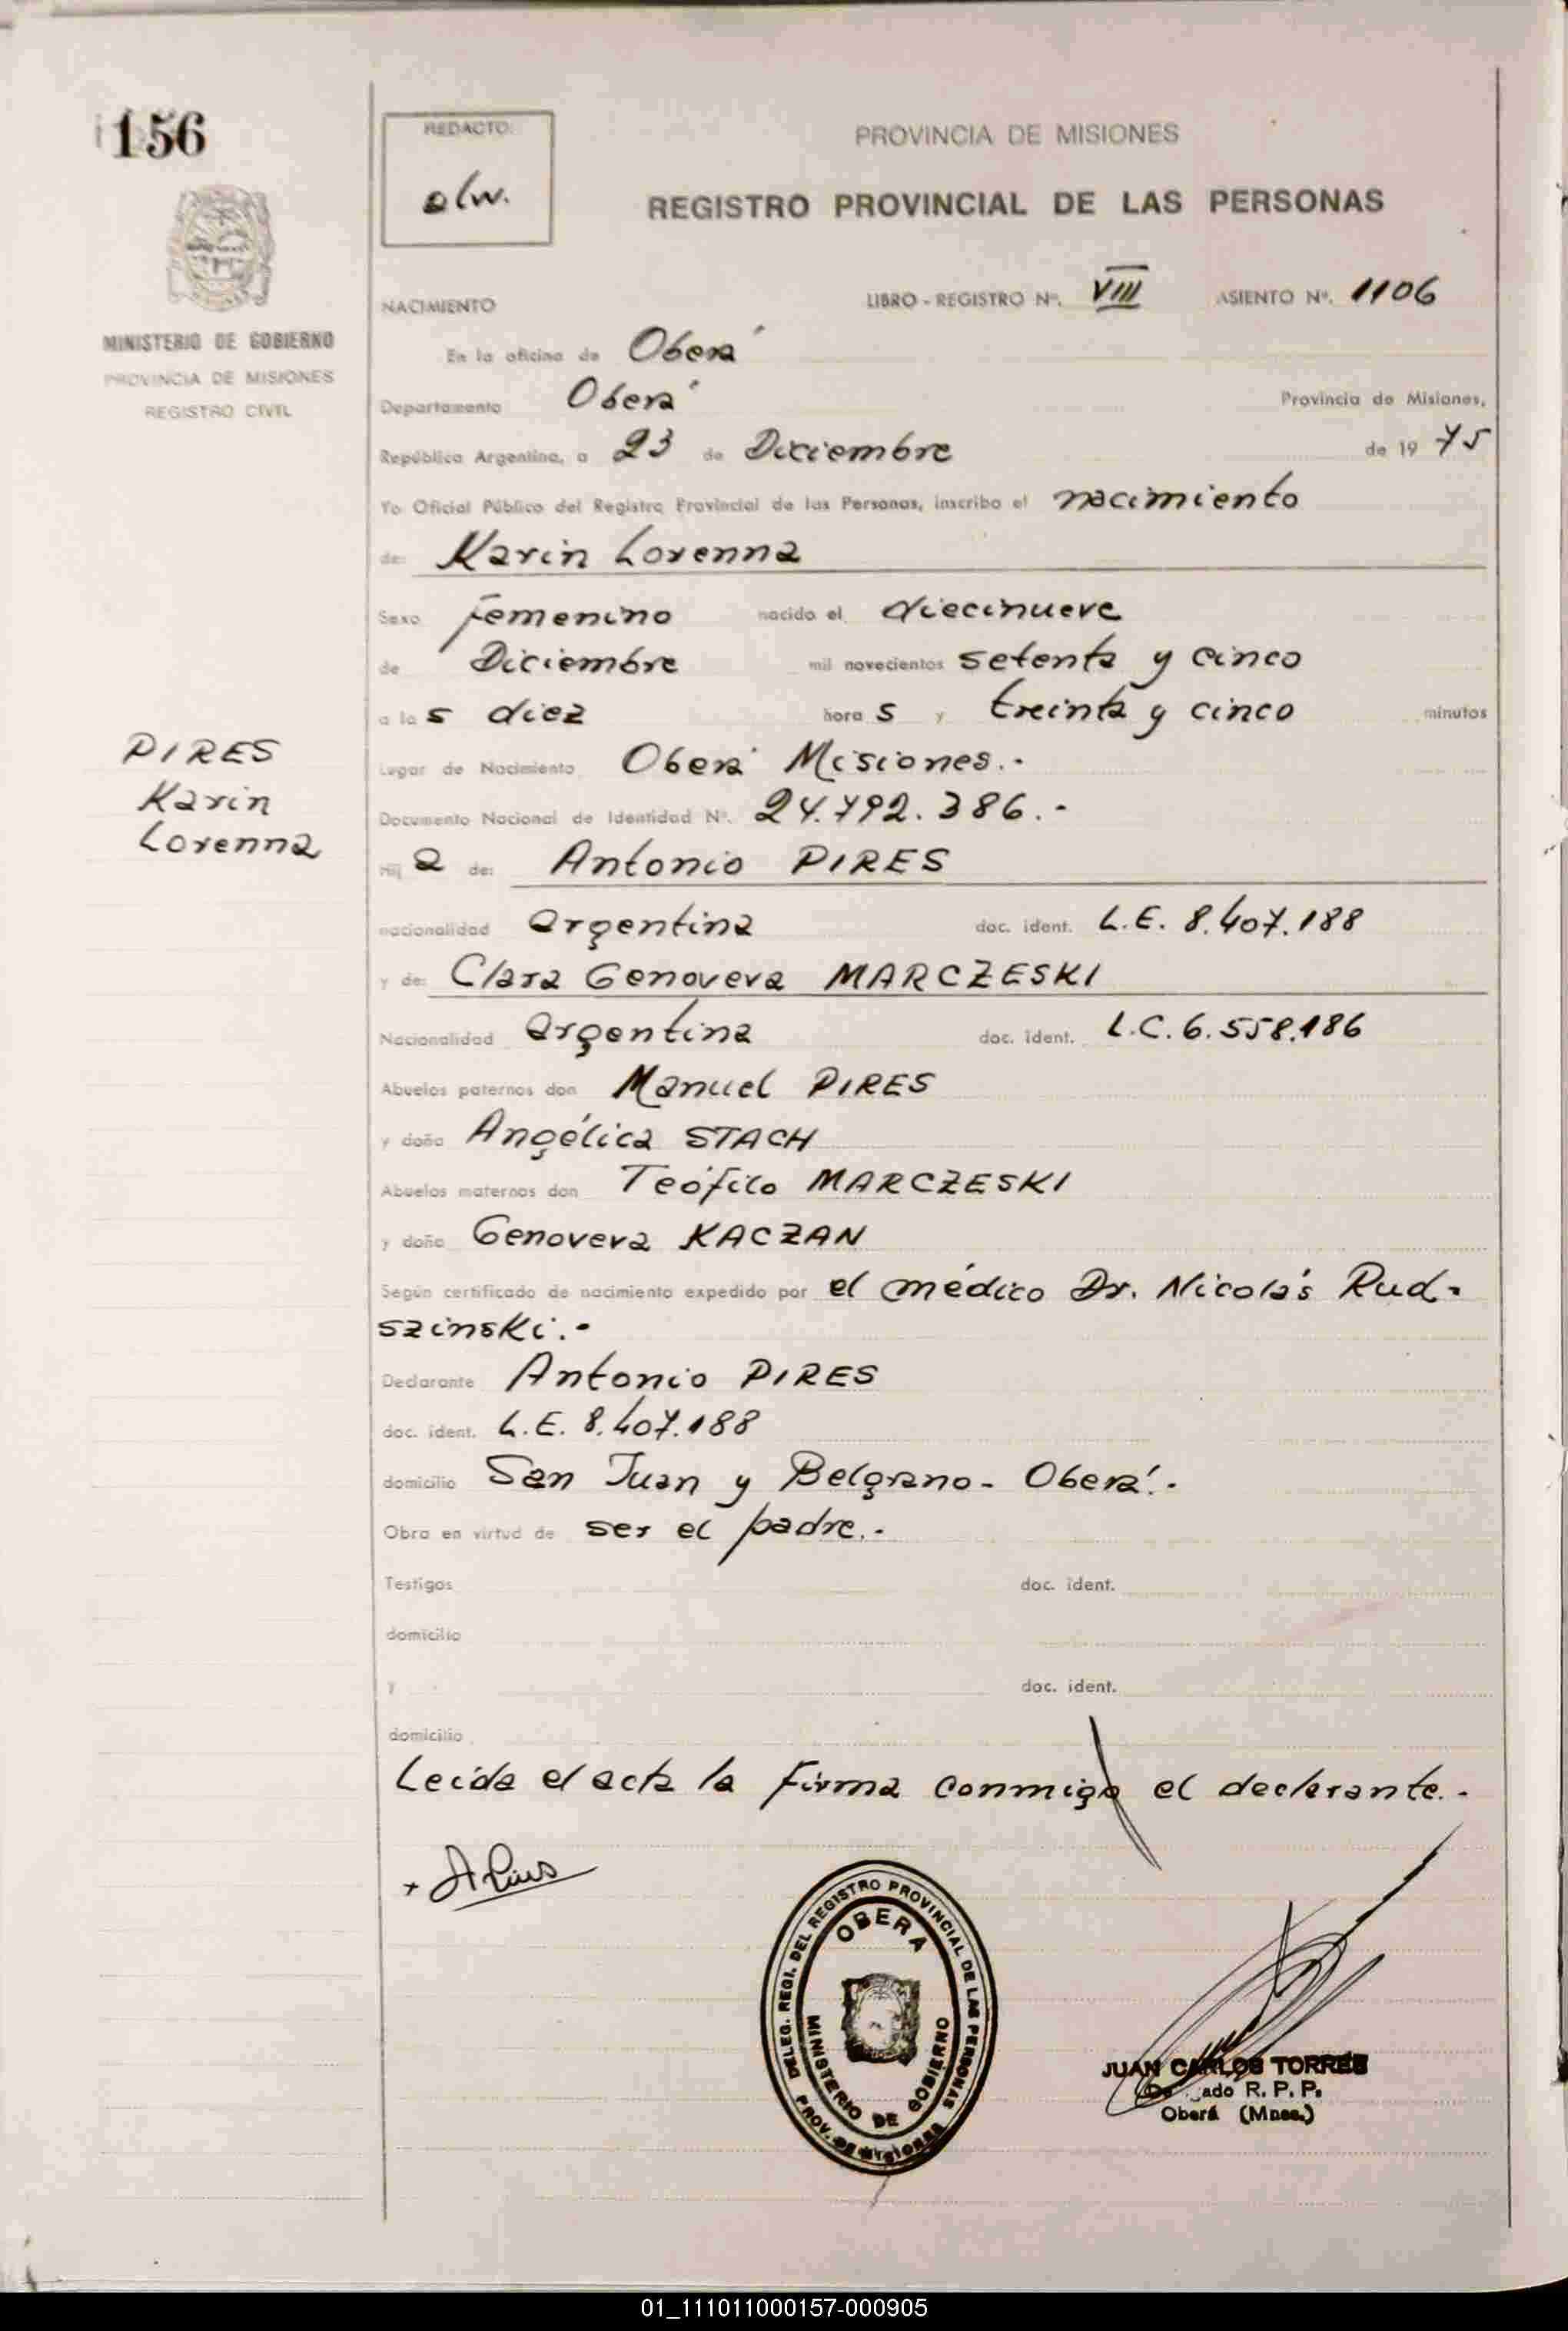 156
REDACTO:
olw.
PROVINCIA DE MISIONES
REGISTRO PROVINCIAL DE LAS PERSONAS
MINISTERIO DE GOBIERNO
PROVINCIA DE MISIONES
REGISTRO CIVIL
NACIMIENTO
LIBRO - REGISTRO Nº. VIII ASIENTO Nº. 1106
En la oficina de Oberá
Departamento Oberá Provincia de Misiones,
República Argentina, a 23 de Diciembre de 19 75
Yo Oficial Público del Registro Provincial de las Personas, inscribo el nacimiento
de: Karin Lorenna
Sexo femenino nacido el diecinueve
de Diciembre mil novecientos setenta y cinco
a las diez horas y treinta y cinco minutos
PIRES
Karin
Lorenna
Lugar de Nacimiento Oberá Misiones.-
Documento Nacional de Identidad Nº. 24.792.386.-
Hija de: Antonio PIRES
nacionalidad argentina doc. ident. L.E. 8.407.188
y de: Clara Genoveva MARCZESKI
Nacionalidad argentina doc. ident. L.C. 6.558.186
Abuelos paternos don Manuel PIRES
y doña Angélica STACH
Abuelos maternos don Teófilo MARCZESKI
y doña Genoveva KACZAN
Según certificado de nacimiento expedido por el médico Dr. Nicolás Rud-
szinski.-
Declarante Antonio PIRES
doc. ident. L.E. 8.407.188
domicilio San Juan y Belgrano- Oberá.-
Obra en virtud de ser el padre.-
Testigos doc. ident.
domicilio
y doc. ident.
domicilio
Leída el acta la firma conmigo el declarante.-
DELEG. REGI. DEL REGISTRO PROVINCIAL DE LAS PERSONAS
OBERA
MINISTERIO DE GOBIERNO
PROV. DE MISIONES
JUAN CARLOS TORRES
R. P. P.
Oberá (Mnes.)
01_111011000157-000905